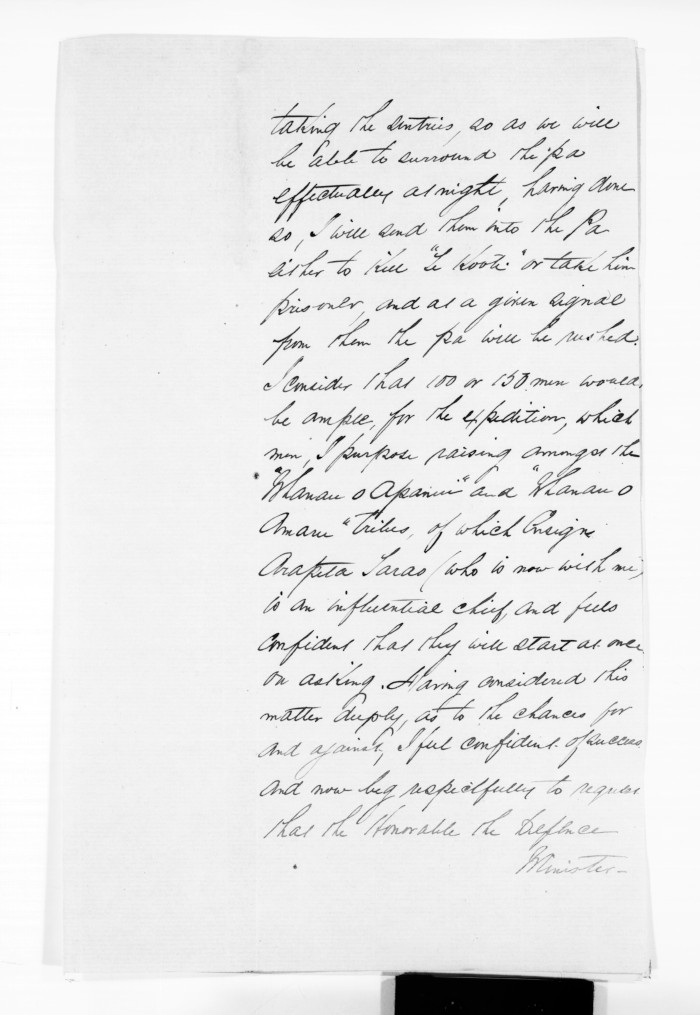 taking the sentries, so as we will
be able to surround the pa
effectually at night, having done
so, I will send them into the Pa
either to kill "Te Kooti" or take him
prisoner, and at a given signal
from them the pa will be rushed.
I consider that 100 or 150 men would,
be ample, for the expedition, which
men, I purpose raising amongst the
"Whanau o Apanui" and "Whanau o
Amaru" tribes, of which Ensign
Arapeta (who is now with me)
is an influential chief, and feels
confident that they will start at once
on asking. Having considered this
matter deeply, as to the chances for
and against, I feel confident of success
and now beg respectfully to request
that the Honorable the Defence
Minister—